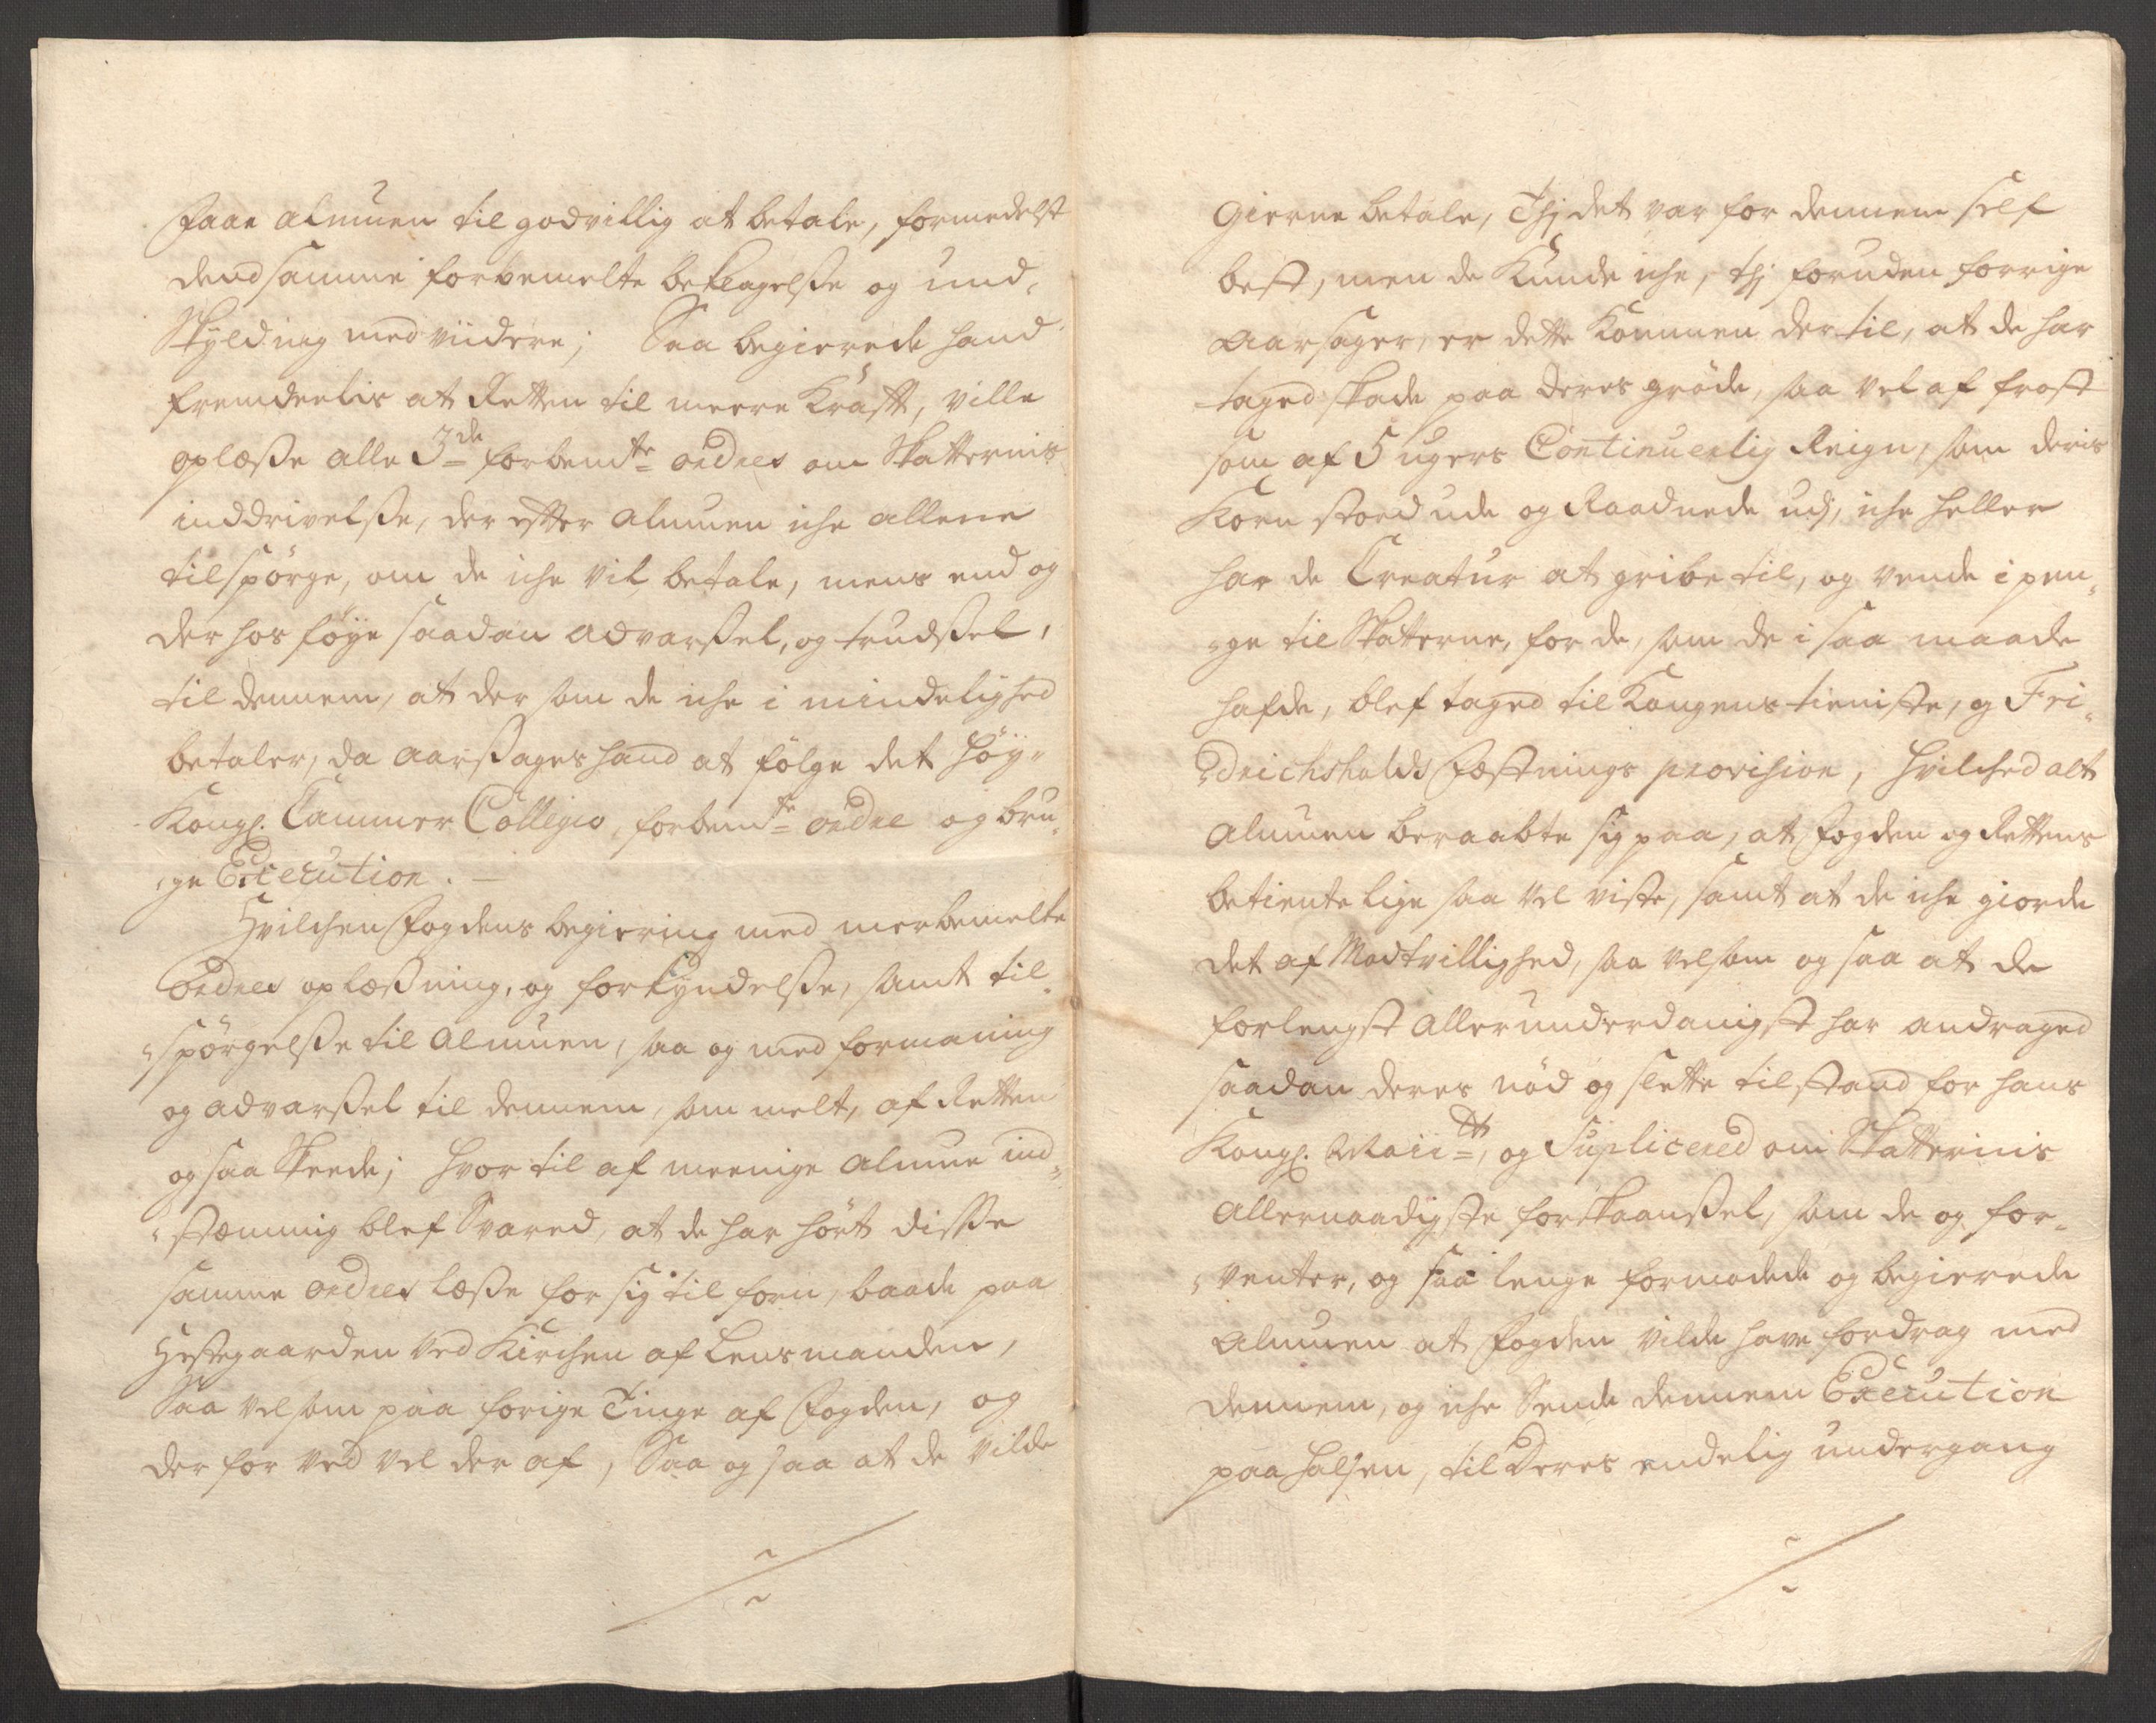 faae almuen til godvillig at betale, formedelst
dend samme forbemelte beklagelsse og und,
skyldning med viidere; Saa begierede hand
fremdeelis at Retten til meere Krafft, ville
oplæsse alle 3de forbemte ordres om Skatternis
inddrivelsse, der efter almuen iche allene
tilspörge, om de iche vil betale, mens end og
der hos föye saadan advarssel, og trudssel,
til dennem, at der som de iche i mindelighed
betaler, da aarssages hand at fölge det höy-
Kongl. Cammer Collegio, forbemte ordre og bru,
,ge Execution. —
Hvilchen fogdens begiering med merbemelte
ordres oplæssning, og forkyndelsse, samt til-
,spörgelsse til almuen, saa og med formaning
og advarssel til dennem, som melt, af Retten
og saa Skeede; hvor til af meenige almue ind,
,stemmig blef Svared, at de har hört disse
samme ordres læsse for sig til forn, baade paa
Hestegaarden ved Kirchen af Lensmanden,
Saa vel som paa forige Tinge af fogden, og
der for ved vel der af, Saa og saa at de vilde
Gierne betale, Thj det var for dennem self
best, men de Kunde iche, thj foruden forrige
aarsager, er dette Kommen der til, at de har
taged skade paa deres gröde, saa vel af frost
som af 5 ugers Continuerlig Reign, som deris
Korn stoed ude og Raadnede udj, iche heller
har de Creatur at gribe til, og vende i pen,
,ge til Skatterne, for de, som de i saa maade
hafde, blef taged til Kongens tieniste, og Fri,
,drichshalds fæstnings provision, hvilched alt
almuen beraabte sig paa, at fogden og Rettens
betiente lige saa vel viste, samt at de iche giorde
det af Modtvillighed, saa vel som og saa at de
forlengst allerunderdanigst har andraged
saadan deres nöd og slette tilstand for hans
Kongl. Maiits, og Suplicered om Skatternis
allernaadigste forskaanssel, som de og for-
,venter, og saa lenge formodede og begierede
almuen at fogden vilde have fordrag med
dennem, og iche Sende dennem Execution
paa halsen, til Deres endelig undergang